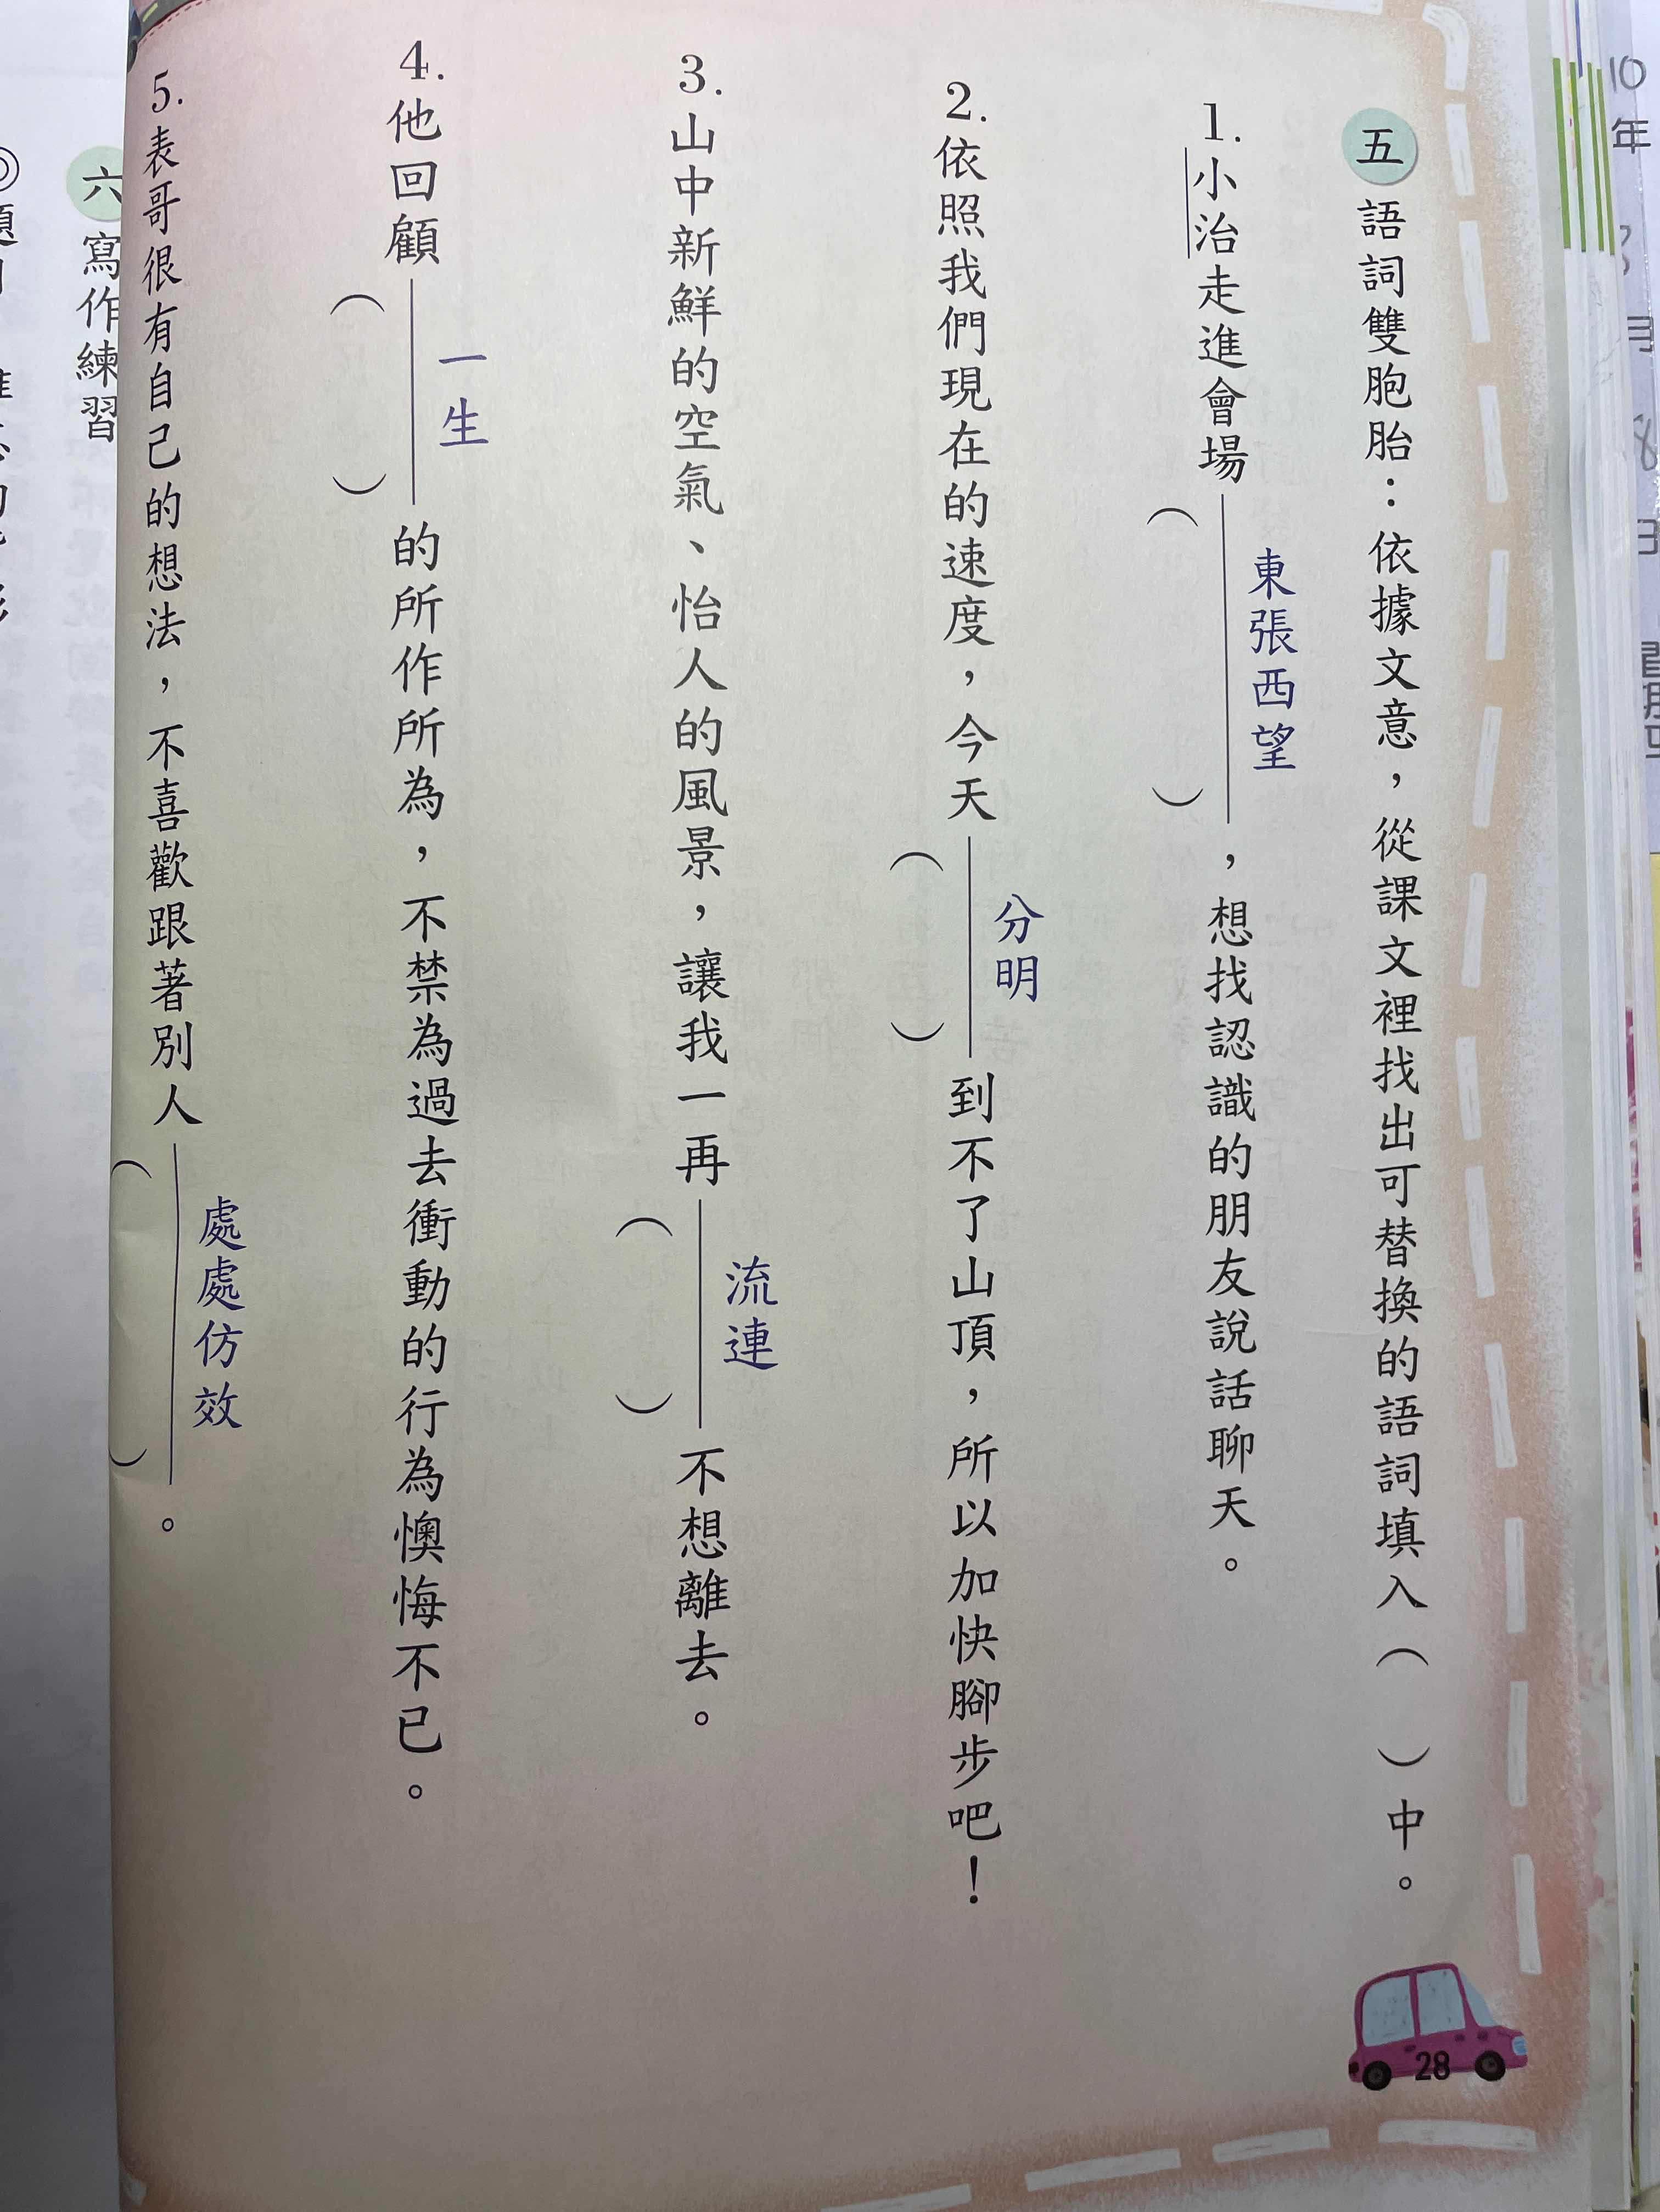 五 語詞雙胞胎：依據文意，從課文裡找出可替換的語詞填入（ ）中。
1.小治走進會場（ ），想找認識的朋友說話聊天。
東張西望
2.依照我們現在的速度，今天（ ）到不了山頂，所以加快腳步吧！
分明
3.山中新鮮的空氣、怡人的風景，讓我一再（ ）不想離去。
流連
4.他回顧（ ）的所作所為，不禁為過去衝動的行為懊悔不已。
一生
5.表哥很有自己的想法，不喜歡跟著別人（ ）。
處處仿效
六 寫作練習
28
10年
月